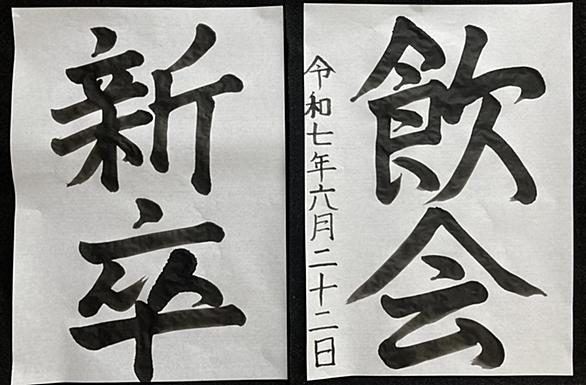 飲会
令和七年六月二十二日
新卒